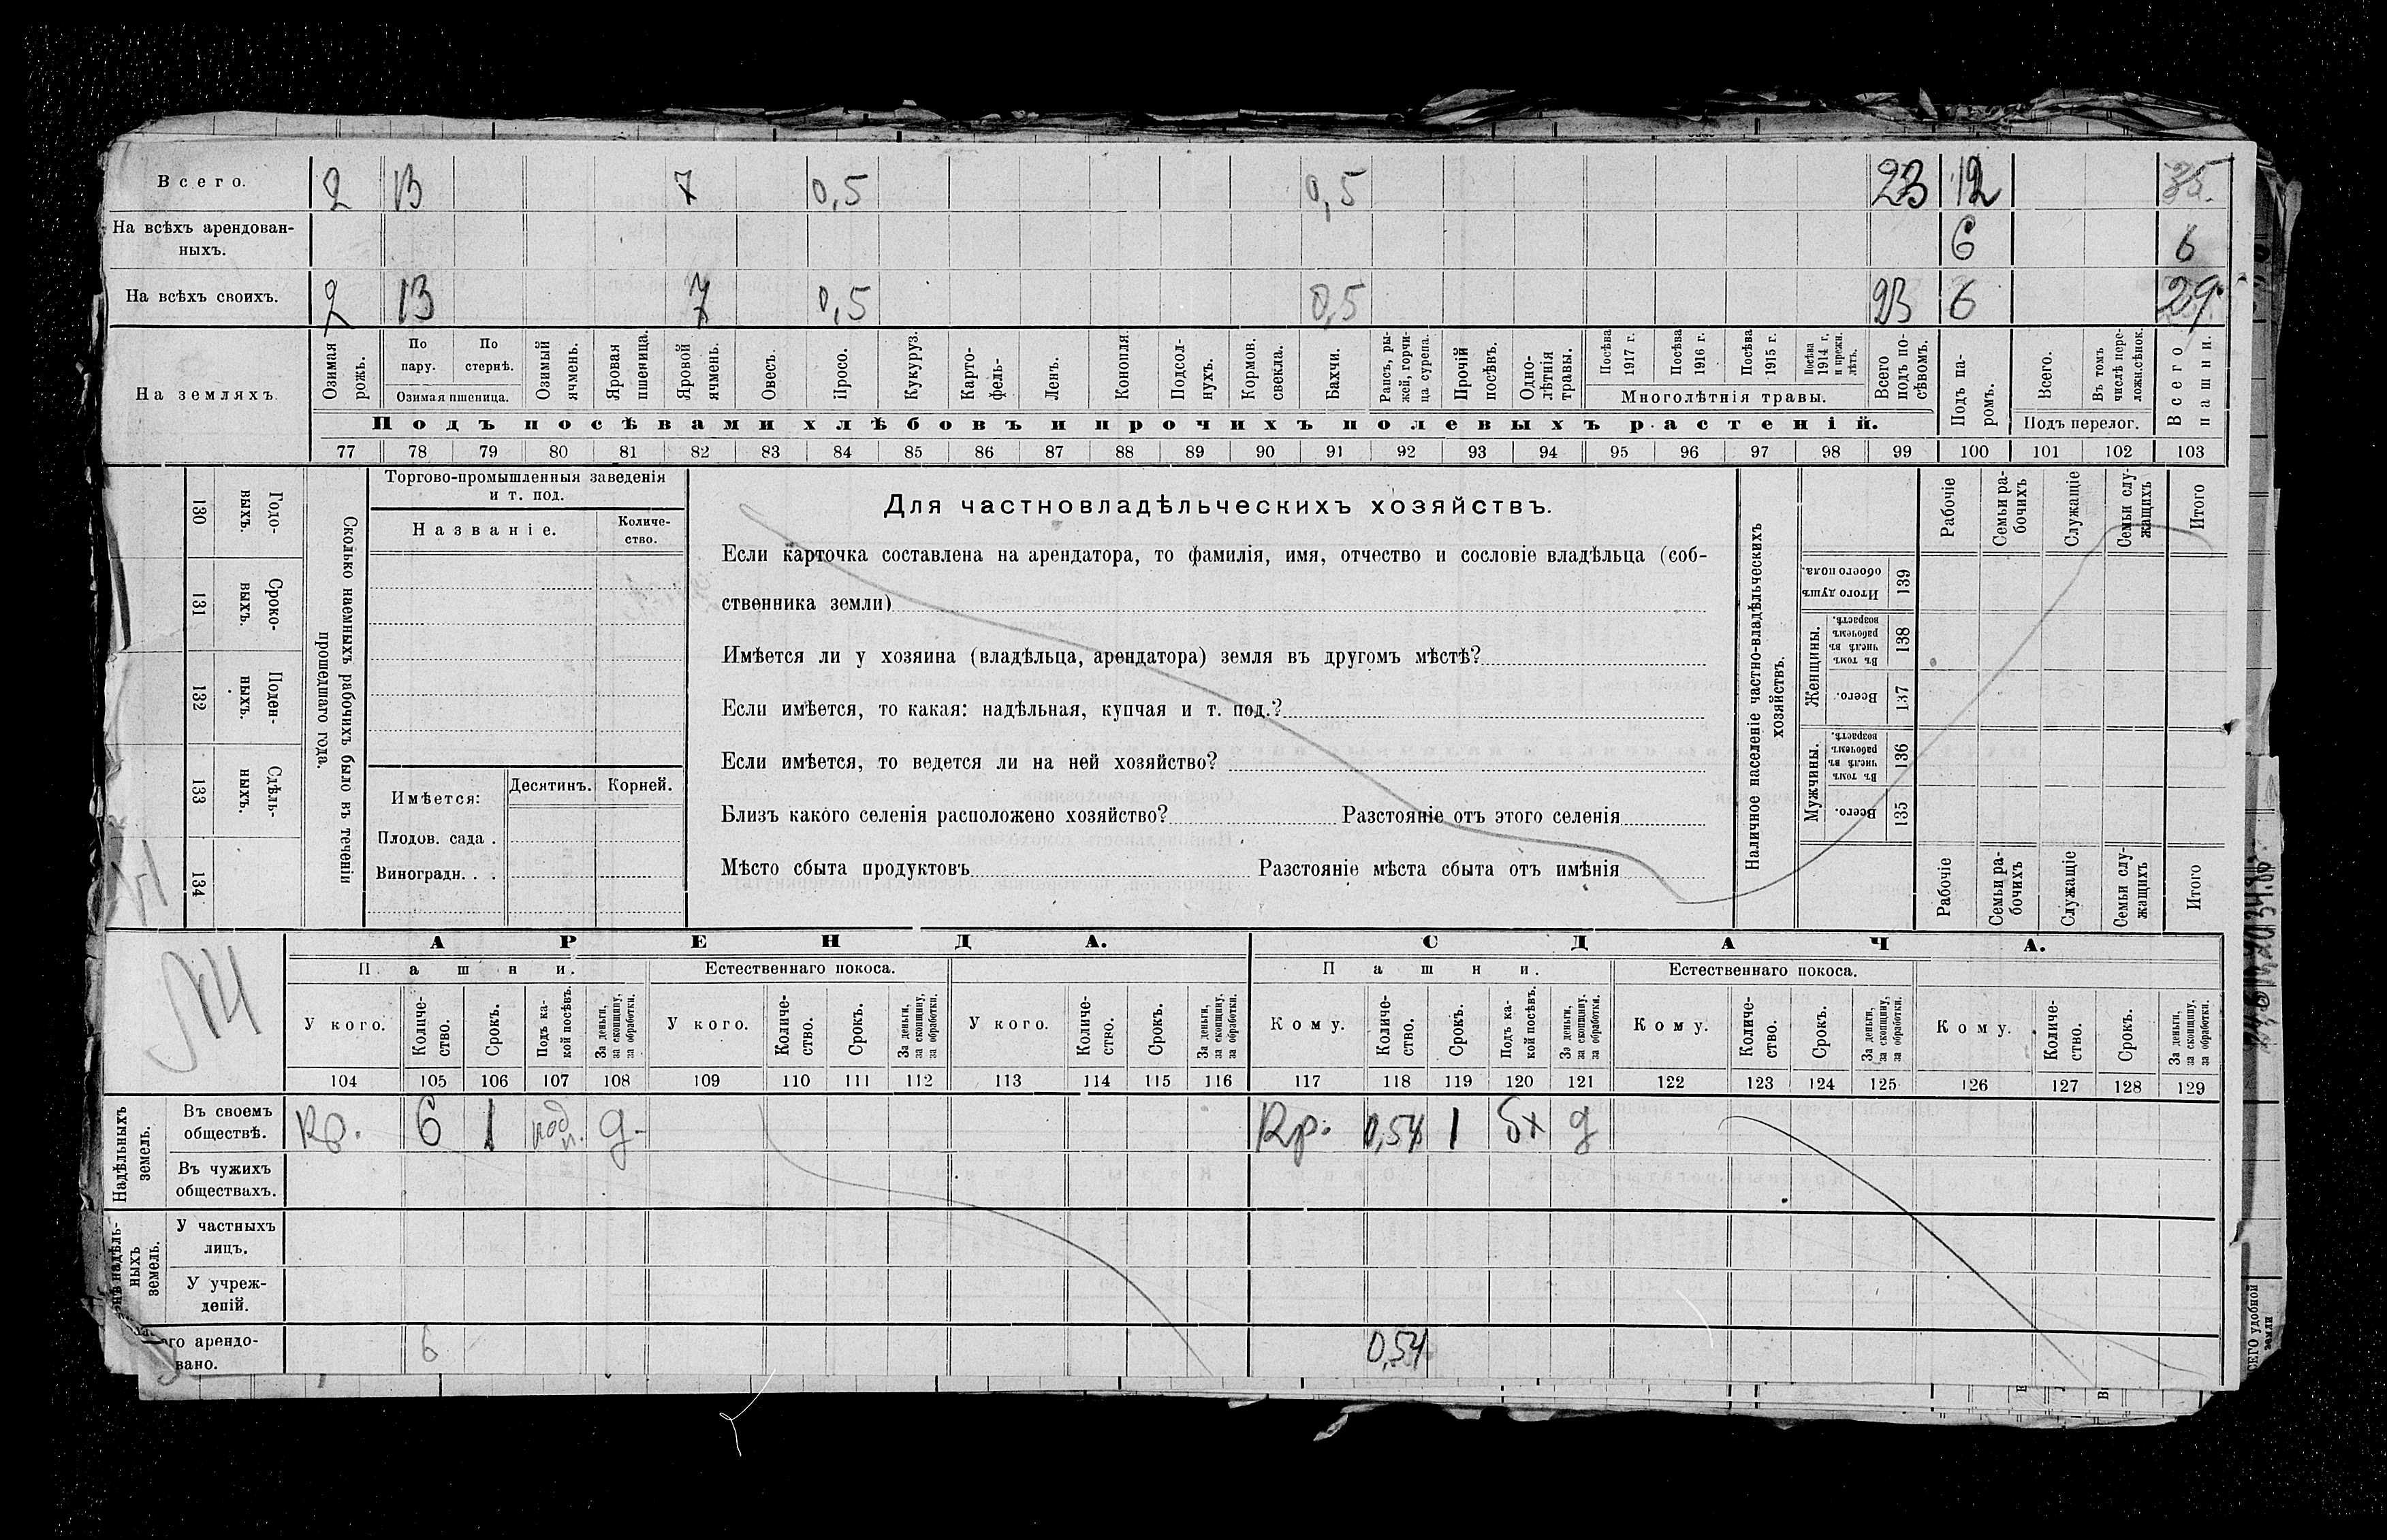 Всего. 2 13 7 0,5 0,5 23 12 35.
На всѣхъ арендован-
ныхъ. 6 6
На всѣхъ своихъ. 2 13 7 0,5 0,5 23 6 29.
На земляхъ.
Озимая рожь.
По пару.
По стернѣ.
Озимая пшеница.
Озимый ячмень.
Яровая пшеница.
Яровой ячмень.
Овесъ.
Просо.
Кукуруз.
Карто-
фель.
Ленъ.
Конопля.
Подсол-
нухъ.
Кормов. свекла.
Бахчи.
Рапсъ, ры-
жей, горчи-
ца сурепа.
Прочій посѣвъ.
Одно-
лѣтнія травы.
Посѣва 1917 г.
Посѣва 1916 г.
Посѣва 1915 г.
Посѣва 1914 г. и прежн. лѣтъ.
Многолѣтнія травы.
Всего подъ по-
сѣвомъ.
Подъ па-
ромъ.
Всего.
Въ томъ числѣ пере-
ложн.сѣнок.
Подъ перелог.
Всего пашни.
Подъ посѣвами хлѣбовъ и прочихъ полевыхъ растеній.
77 78 79 80 81 82 83 84 85 86 87 88 89 90 91 92 93 94 95 96 97 98 99 100 101 102 103
130 Годо-
ныхъ.
131 Сроко-
ныхъ.
132 Поден-
ныхъ.
133 Сдѣль-
ныхъ.
134
Сколько наемныхъ рабочихъ было въ теченіи
прошедшаго года.
Торгово-промышленныя заведенія
и т. под.
Названіе.
Количе-
ство.
Имѣется:
Десятинъ. Корней.
Плодов. сада .
Виноградн. . .
Для частновладѣльческихъ хозяйствъ.
Если карточка составлена на арендатора, то фамилія, имя, отчество и сословіе владѣльца (соб-
ственника земли)
Имѣется ли у хозяина (владѣльца, арендатора) земля въ другомъ мѣстѣ?
Если имѣется, то какая: надѣльная, купчая и т. под.?
Если имѣется, то ведется ли на ней хозяйство?
Близъ какого селенія расположено хозяйство? Разстояніе отъ этого селенія
Мѣсто сбыта продуктовъ Разстояніе мѣста сбыта отъ имѣнія
Наличное населеніе частно-владѣльческихъ
хозяйствъ.
Рабочіе
Семьи ра-
бочихъ
Служащіе
Семьи слу-
жащихъ
Итого
Итого душъ обоего пола. 139
Женщины.
Въ томъ числѣ въ рабочемъ возрастѣ. 138
Всего. 137
Мужчины.
Въ томъ числѣ въ рабочемъ возрастѣ. 136
Всего. 135
Рабочіе
Семьи ра-
бочихъ
Служащіе
Семьи слу-
жащихъ
Итого
АРЕНДА. СДАЧА.
Пашни. Естественнаго покоса. Пашни. Естественнаго покоса.
У кого. Количе-
ство. Срокъ. Подъ ка-
кой посѣвъ. За деньги, за скопщину, за обработки.
У кого. Количе-
ство. Срокъ. За деньги, за скопщину, за обработки.
У кого. Количе-
ство. Срокъ. За деньги, за скопщину, за обработки.
Кому. Количе-
ство. Срокъ. Подъ ка-
кой посѣвъ. За деньги, за скопщину, за обработки.
Кому. Количе-
ство. Срокъ. За деньги, за скопщину, за обработки.
Кому. Количе-
ство. Срокъ. За деньги, за скопщину, за обработки.
104 105 106 107 108 109 110 111 112 113 114 115 116 117 118 119 120 121 122 123 124 125 126 127 128 129
Надѣльныхъ земель.
Въ своемъ
обществѣ. Кр. 6 1 под п. д. Кр. 0,54 1 бх д
Въ чужихъ
обществахъ.
надѣль-
ныхъ земель.
У частныхъ
лицъ.
У учреж-
деній.
го арендо-
вано. 6 0,54
удобной земли